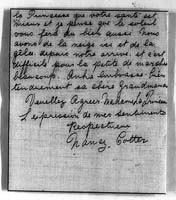 la Princesse que votre santé est
mieux et je pense que le soleil
vous ferd du bien aussi. Nous
avons de la neige ici et de la
gelée depuis notre arrivé et c'est
difficile pour la petite de marcher
beaucoup. Andre embrasse bien
tendrement sa chère Grandmama
Veuillez Agreer Madame la Princesse
l'expression de mes sentiments
Respectueux
Nancy Cotter